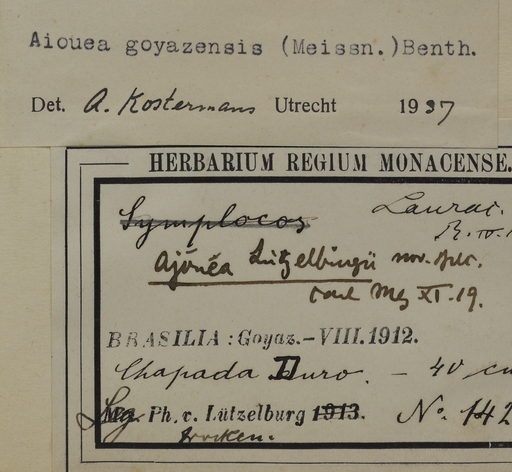 Aiouea goyazensis (Meissn.)Benth.
Det. A. Kostermans Utrecht 1937
HERBARIUM REGIUM MONACENSE.
Symplocos Laurac.
Ajouéa Lützelburgii nov. spec.
Carl Mez XI. 19.
BRASILIA : Goyaz. – VIII. 1912.
Chapada Duro. – 40 cm
Leg. Ph. v. Lützelburg 1913. No. 142
trocken.